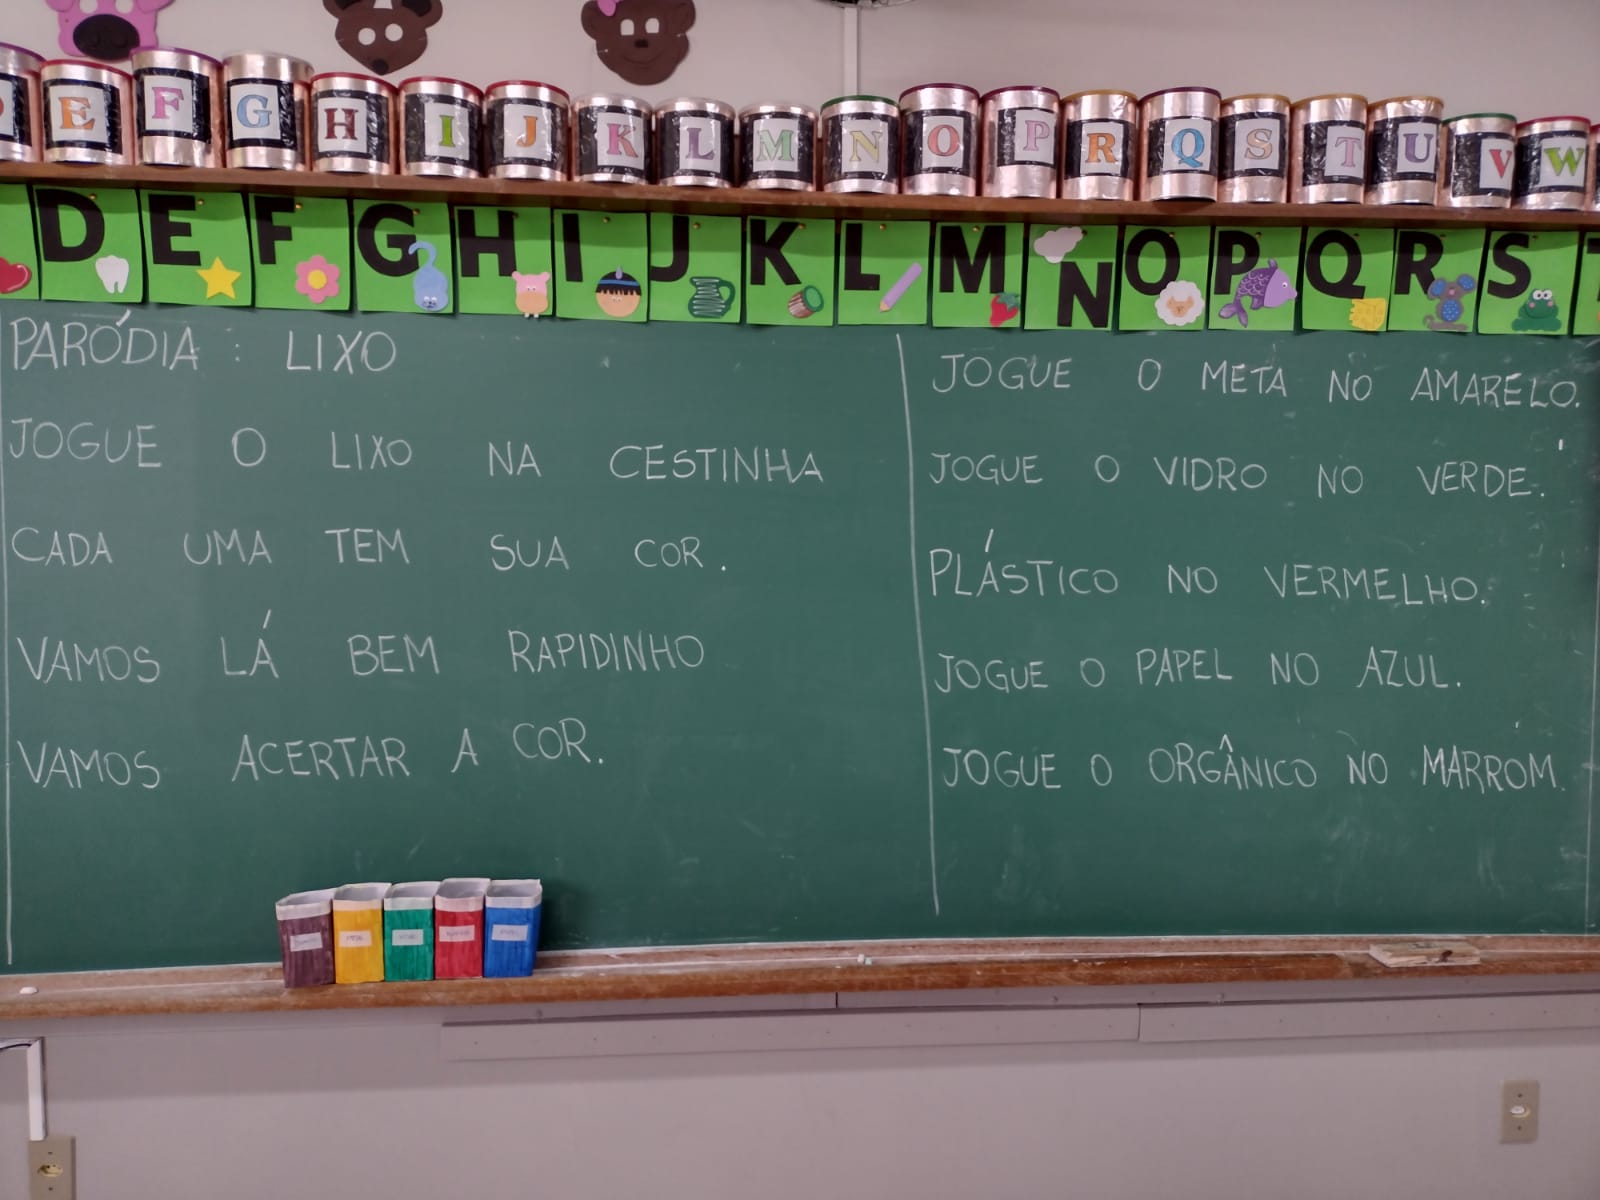 E F G H I J K L M N O P R Q S T U V W
D E F G H I J K L M N O P Q R S
PARÓDIA : LIXO
JOGUE O LIXO NA CESTINHA
CADA UMA TEM SUA COR.
VAMOS LÁ BEM RAPIDINHO
VAMOS ACERTAR A COR.
JOGUE O META NO AMARELO.
JOGUE O VIDRO NO VERDE.
PLÁSTICO NO VERMELHO.
JOGUE O PAPEL NO AZUL.
JOGUE O ORGÂNICO NO MARROM.